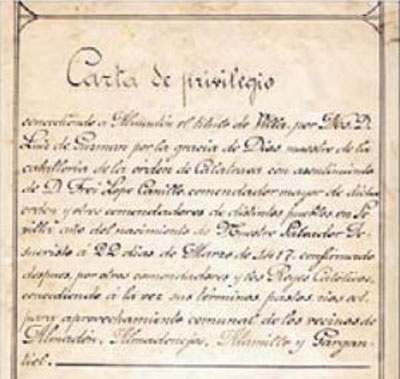 Carta de privilegio
concediendo á Almadén el título de Villa, por Nos. D.
Luis de Guzman por la gracia de Dios maestre de la
caballeria de la órden de Calatrava con asentimiento
de D. Frei Lope Carrillo, comendador mayor de dicha
orden y otros comendadores de distintos pueblos, en Se
villa año del nacimiento de Nuestro Salvador Je-
sucristo á 22 dias de Marzo de 1417, confirmado
despues, por otros comendadores y los Reyes Católicos,
concediendo á la vez sus términos pastos rios ect.
para aprovechamiento comunal de los vecinos de
Almadén, Almadenejos, Alamillo y Gargan-
tiel.